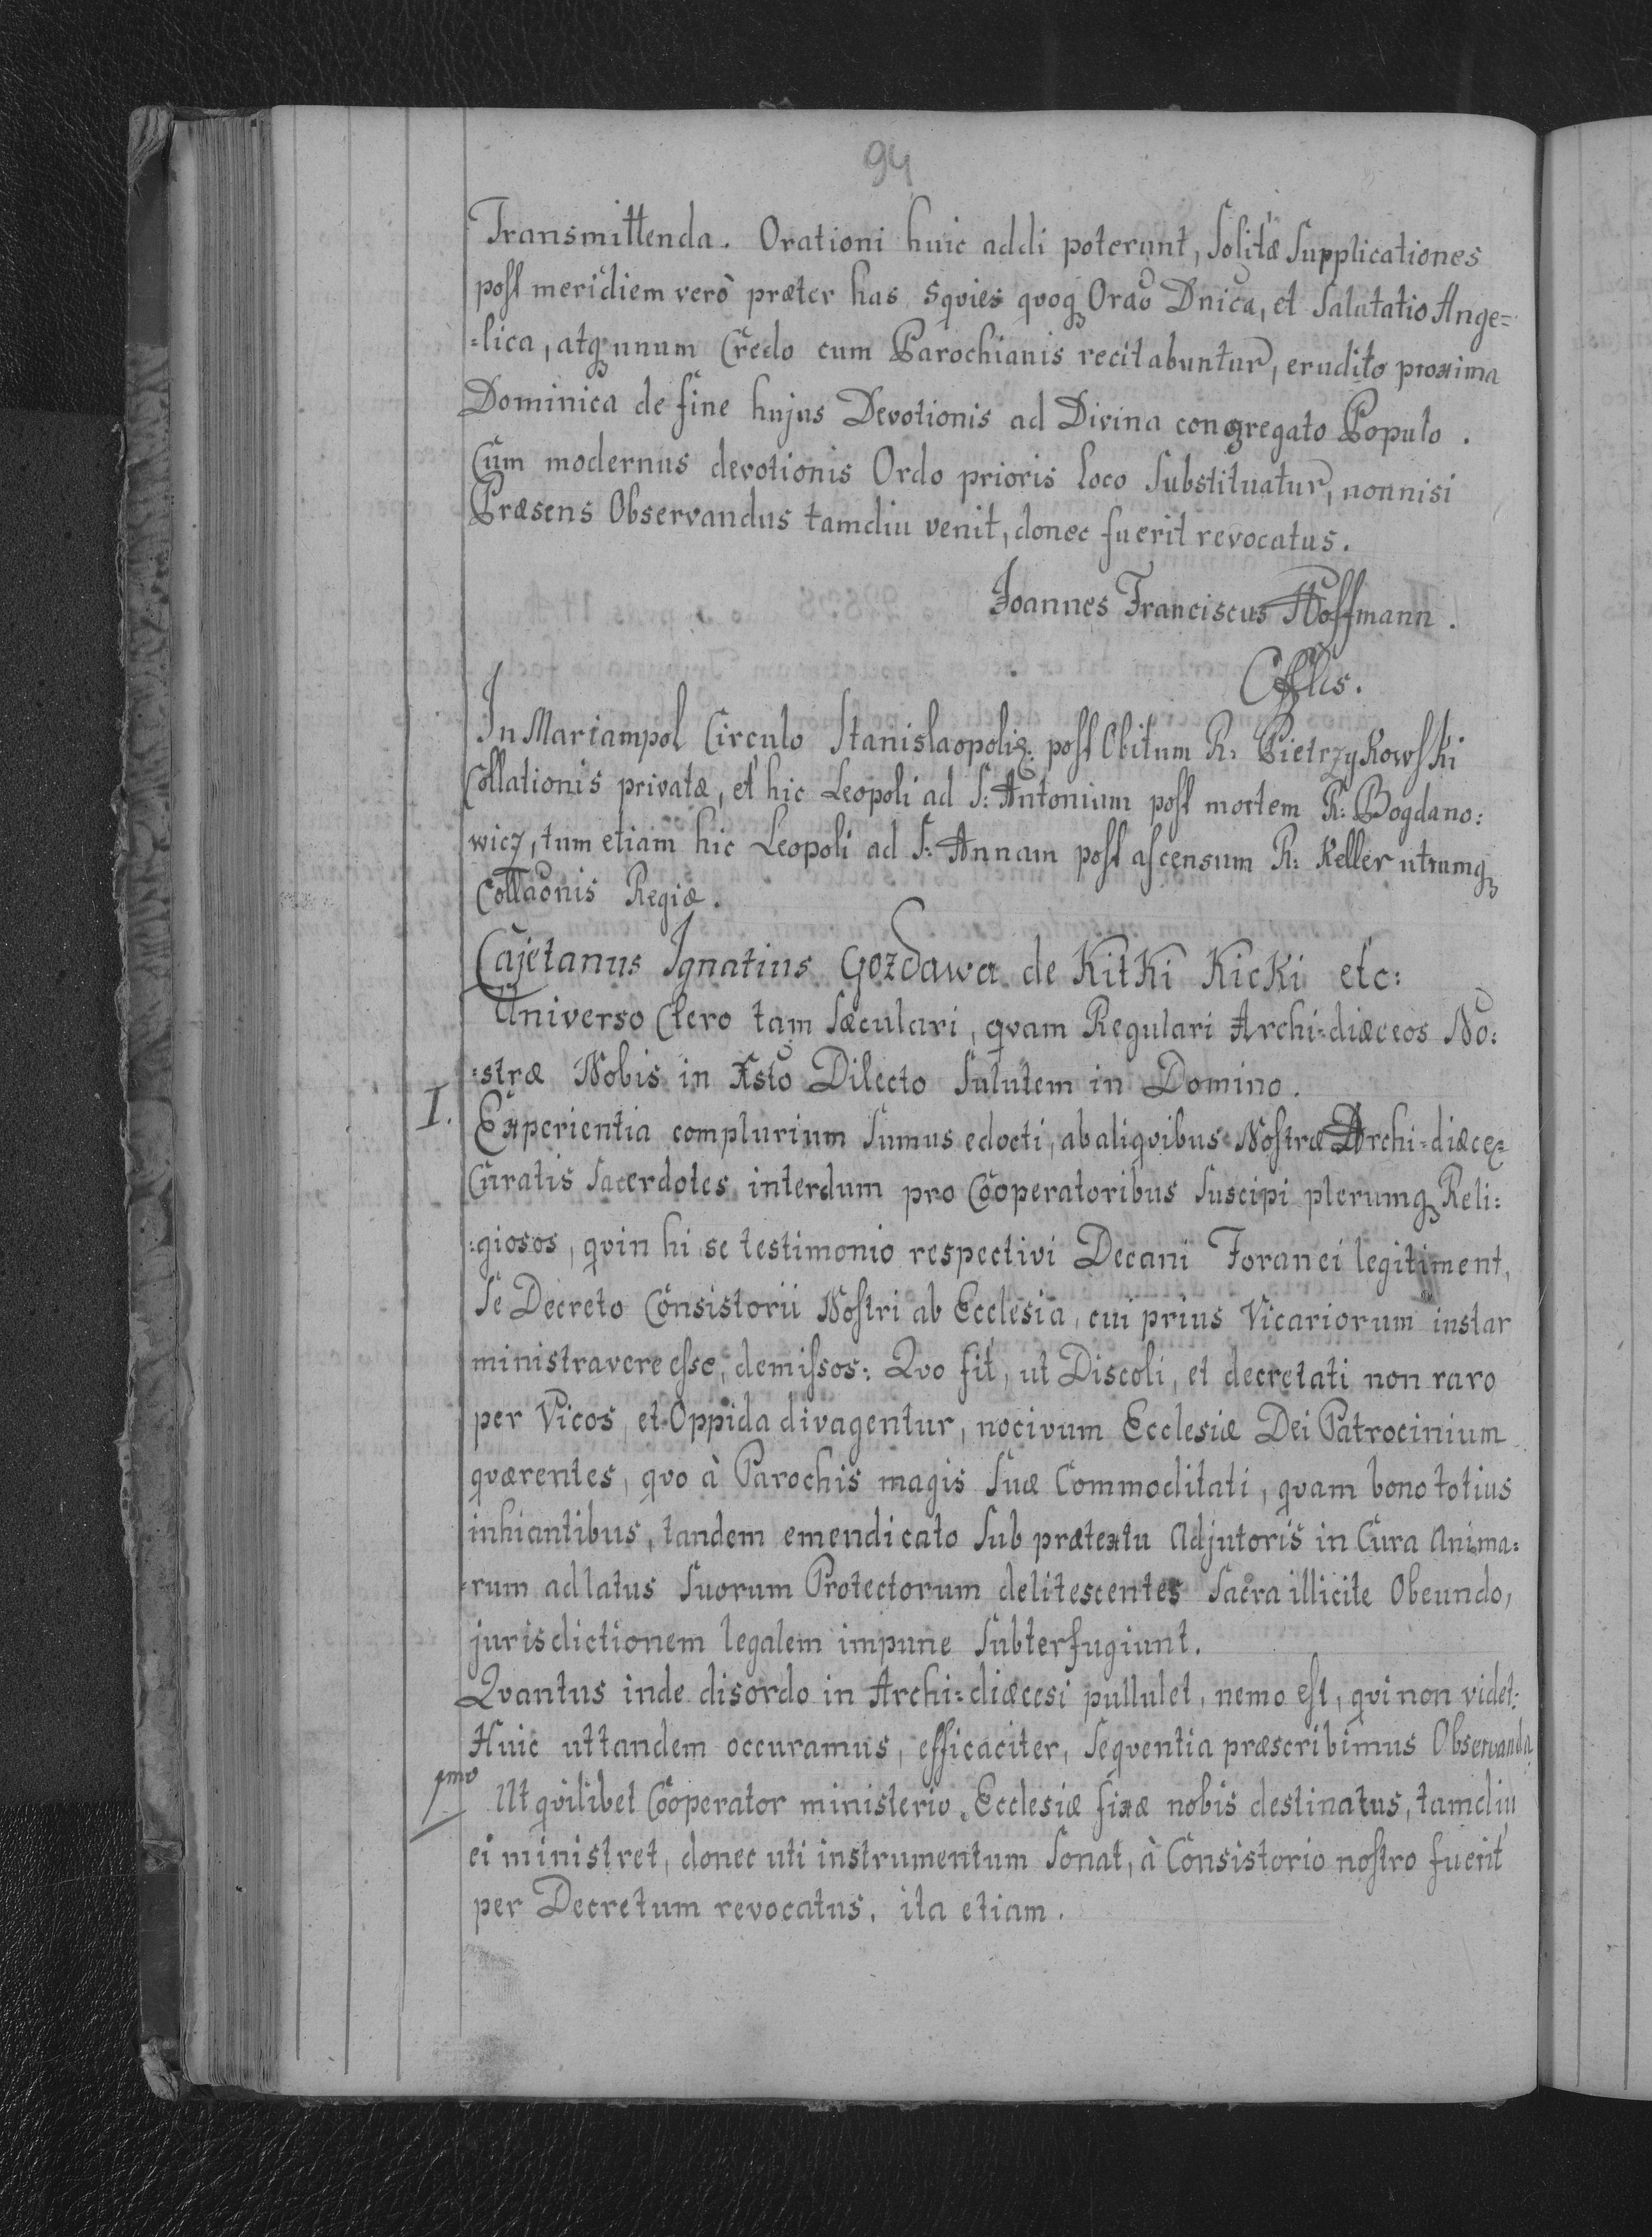 94
Transmittenda. Orationi huic addi poterunt, solitæ supplicationes
post meridiem verò præter has 5qvies qvoq Orao Dnica, et Salutatio Ange=
=lica, atq unum Credo cum Parochianis recitabuntur, erudito proxima
Dominica de fine hujus Devotionis ad Divina congregato Populo.
Cum modernus devotionis Ordo prioris loco substituatur, nonnisi
Præsens Observandus tamdiu venit, donec fuerit revocatus.
Joannes Franciscus Hoffmann.
In Mariampol Circulo Stanislaopoliē: post Obitum R: Pietrzykowski
Collationis privatæ, et hic Leopoli ad S: Antonium post mortem R: Bogdano:
wicz, tum etiam hic Leopoli ad S: Annam post ascensum R: Keller utrumq
Collaonis Regiæ.
Cajetanus Ignatius Gozdawa de Kitki Kicki etc:
Universo Clero tam Sæculari, qvam Regulari Archi=diæceos No:
=stræ Nobis in Xsto Dilecto Salutem in Domino.
I. Experientia complurium sumus edocti, ab aliqvibus Nostræ Archi=diæceē=
Curatis Sacerdotes interdum pro Cooperatoribus suscipi plerumq Reli:
:giosos, qvin hi se testimonio respectivi Decani Foranei legitiment,
se Decreto Consistorii Nostri ab Ecclesia, cui prius Vicariorum instar
ministravere esse, demissos: Qvo fit, ut Discoli, et decretati non raro
per Vicos, et Oppida divagentur, nocivum Ecclesiæ Dei Patrocinium
qværentes, qvo à Parochis magis suæ Commoditati, qvam bono totius
inhiantibus, tandem emendicato sub prætextu Adjutoris in Cura Anima:
=rum ad latus suorum Protectorum delitescentes sacra illicite Obeundo,
jurisdictionem legalem impune subterfugiunt.
Qvantus inde disordo in Archi=diæcesi pullulet, nemo est, qvi non videt:
Huic uttandem occuramus, efficaciter, seqventia præscribimus Observanda
1mo Ut qvilibet Cooperator ministerio Ecclesiæ fixæ nobis destinatus, tamdiu
ei ministret, donec uti instrumentum sonat, à Consistorio nostro fuerit
per Decretum revocatus. ita etiam.